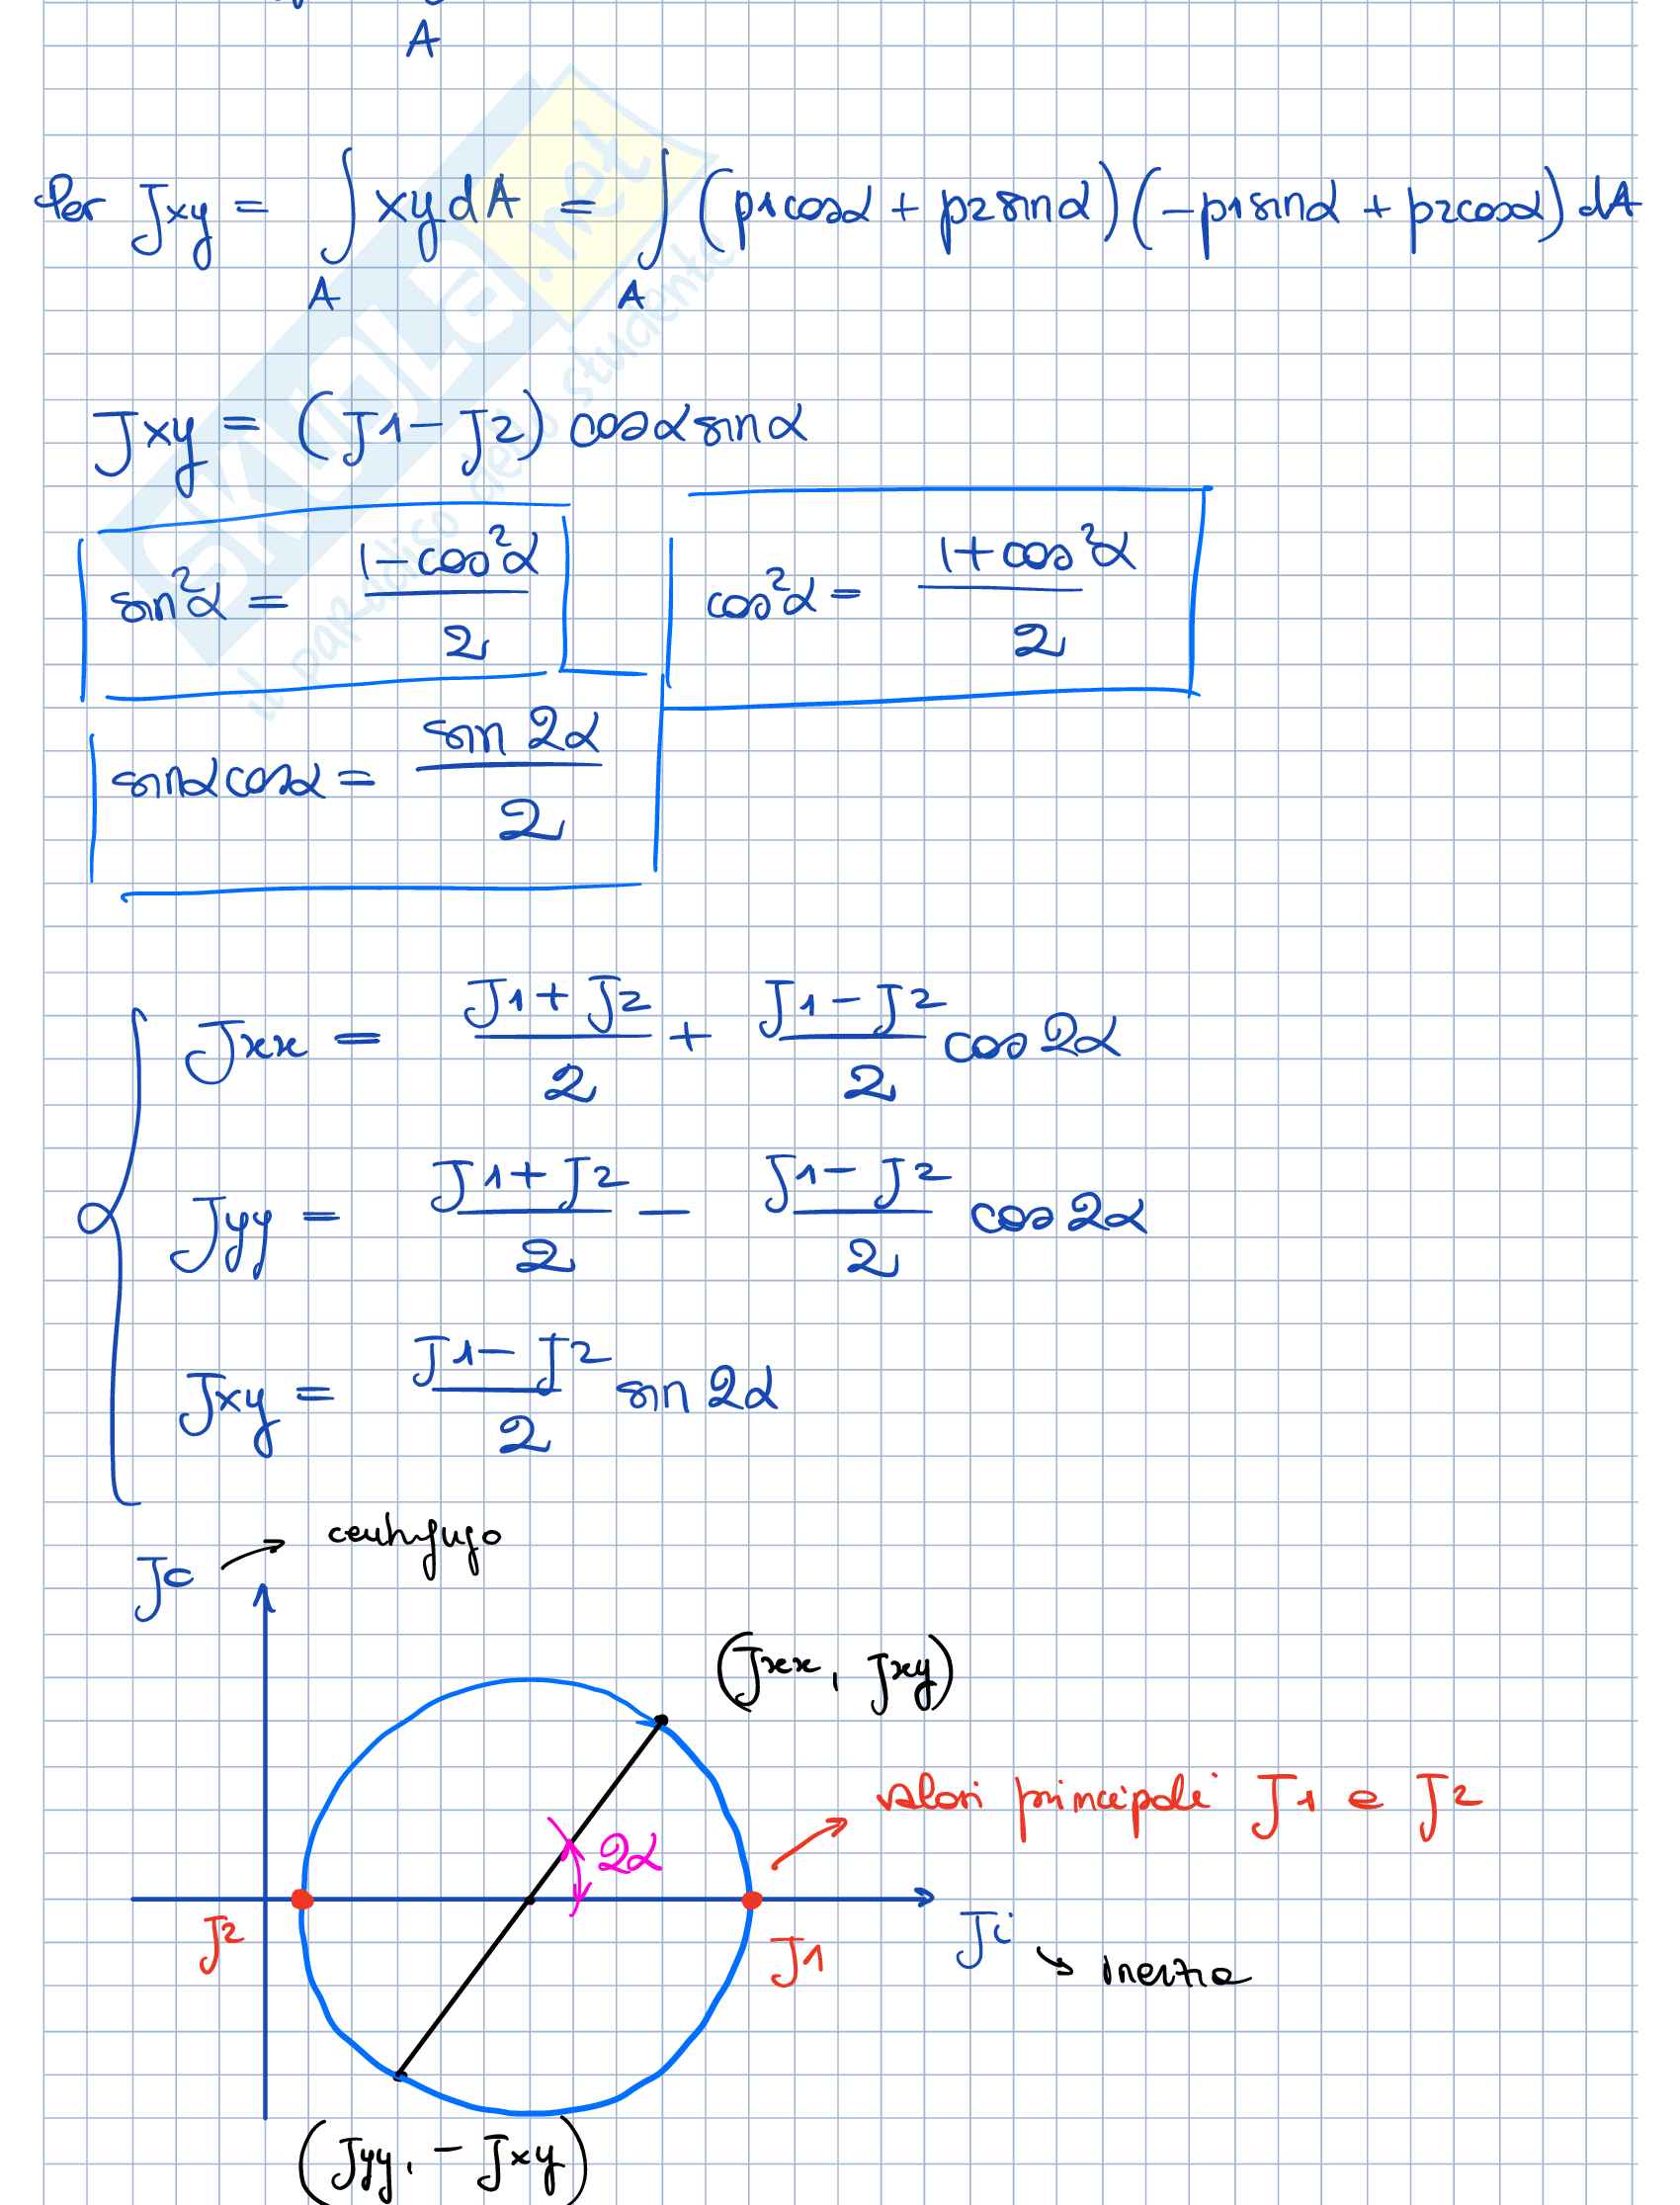 A
Per Jxy = ∫ xy dA = ∫ (p1cosα + p2sinα)(-p1sinα + p2cosα) dA
A A
Jxy = (J1 - J2) cosα sinα
sin²α = (1 - cos²α)/2 cos²α = (1 + cos²α)/2
sinα cosα = sin 2α/2
Jxx = (J1 + J2)/2 + (J1 - J2)/2 cos 2α
Jyy = (J1 + J2)/2 - (J1 - J2)/2 cos 2α
Jxy = (J1 - J2)/2 sin 2α
Jc → centrifugo
(Jxx, Jxy)
valori principali J1 e J2
2α
J2 J1 Ji → inerzia
(Jyy, -Jxy)
SKUOLA.net
il paradiso dello studente